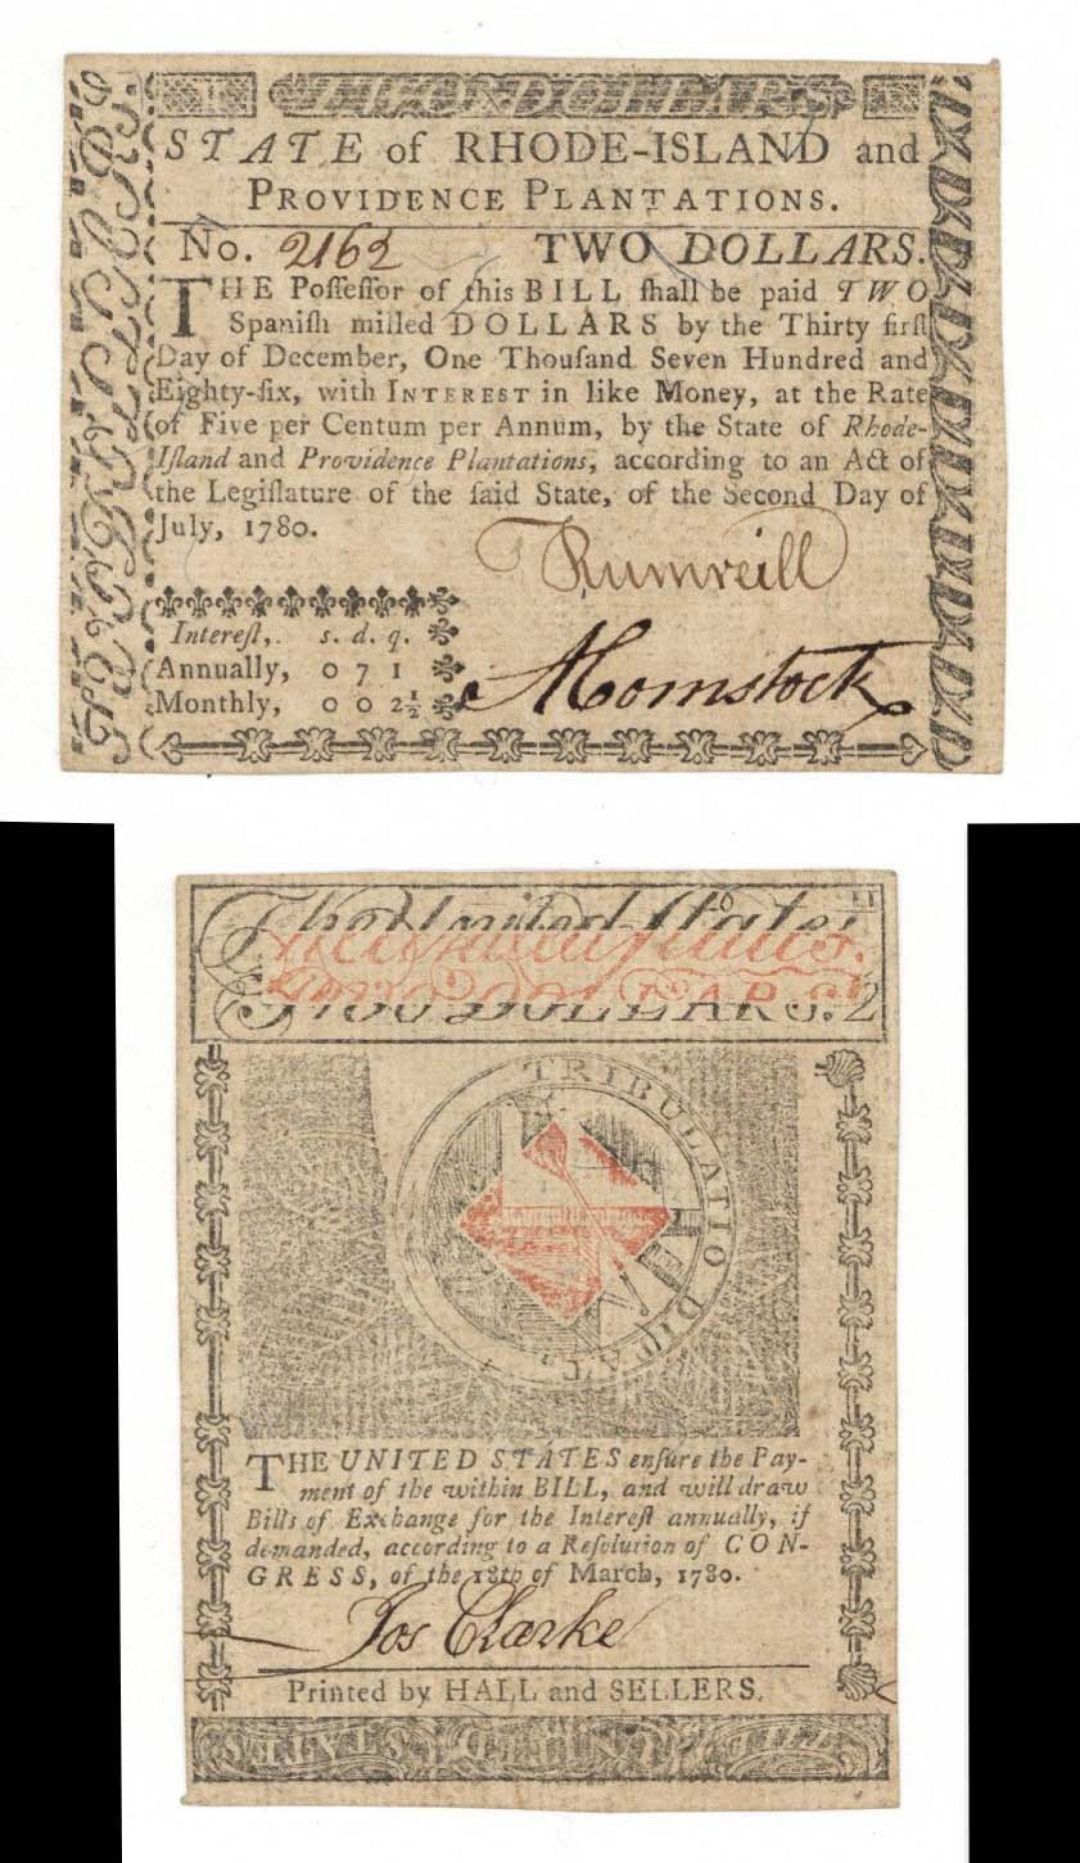 TWO DOLLARS
STATE of RHODE-ISLAND and
PROVIDENCE PLANTATIONS.
No. 2162 TWO DOLLARS.
THE Poſſeſſor of this BILL ſhall be paid TWO
Spaniſh milled DOLLARS by the Thirty firſt
Day of December, One Thouſand Seven Hundred and
Eighty-ſix, with INTEREST in like Money, at the Rate
of Five per Centum per Annum, by the State of Rhode-
Iſland and Providence Plantations, according to an Act of
the Legiſlature of the ſaid State, of the Second Day of
July, 1780.
Rumreill
Interеſt, s. d. q.
Annually, 0 7 1
Monthly, 0 0 2½
A Comstock
The United States
TWO DOLLARS. 2
TRIBULATIO DITAT
THE UNITED STATES enſure the Pay-
ment of the within BILL, and will draw
Bills of Exchange for the Intereſt annually, if
demanded, according to a Reſolution of CON-
GRESS, of the 18th of March, 1780.
Jos Clarke
Printed by HALL and SELLERS.
THE UNITED STATES